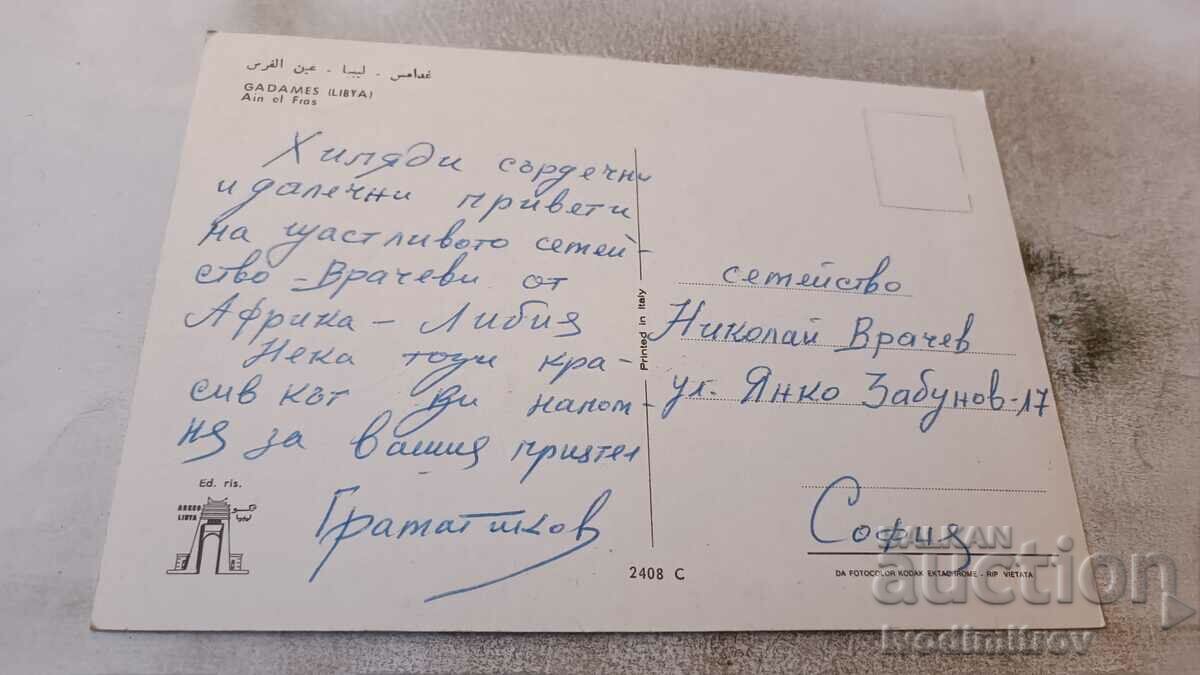 غدامس - ليبيا - عين الفرس
GADAMES (LIBYA)
Ain el Fras
Хиляди сърдечни
и далечни привети
на щастливото семей-
ство - Врачеви от
Африка - Либия
Нека този кра-
сив кът ви напом-
ня за вашия приятел
Граматиков
Ed. ris.
LIBYA
ليبيا
Printed in Italy
2408 C
семейство
Николай Врачев
ул. Янко Забунов-17
София
DA FOTOCOLOR KODAK EKTACHROME - RIP. VIETATA
BALKAN
auction
ivodimitrov